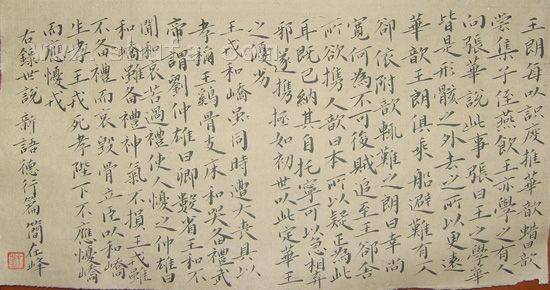 王朗每以識度推華歆蜡日歆
嘗集子侄燕飲王亦學之有人
向張華說此事張曰王之學華
皆是形骸之外去之所以更遠
華歆王朗俱乘船避難有人
欲依附歆輒難之朗曰幸尚
寬何為不可後賊追至王欲舍
所攜人歆曰本所以疑正為此
耳既已納其自托寧可以急相棄
邪遂攜拯如初世以此定華王
之優劣
王戎和嶠同時遭大喪具以
孝稱王雞骨支床和哭備禮武
帝謂劉仲雄曰卿數省王和不
聞和哀苦過禮使人憂之仲雄曰
和嶠雖備禮神氣不損王戎雖
不備禮而哀毀骨立臣以和嶠
生孝王戎死孝陛下不應憂嶠
而應憂戎
右錄世說新語德行篇簡在峰